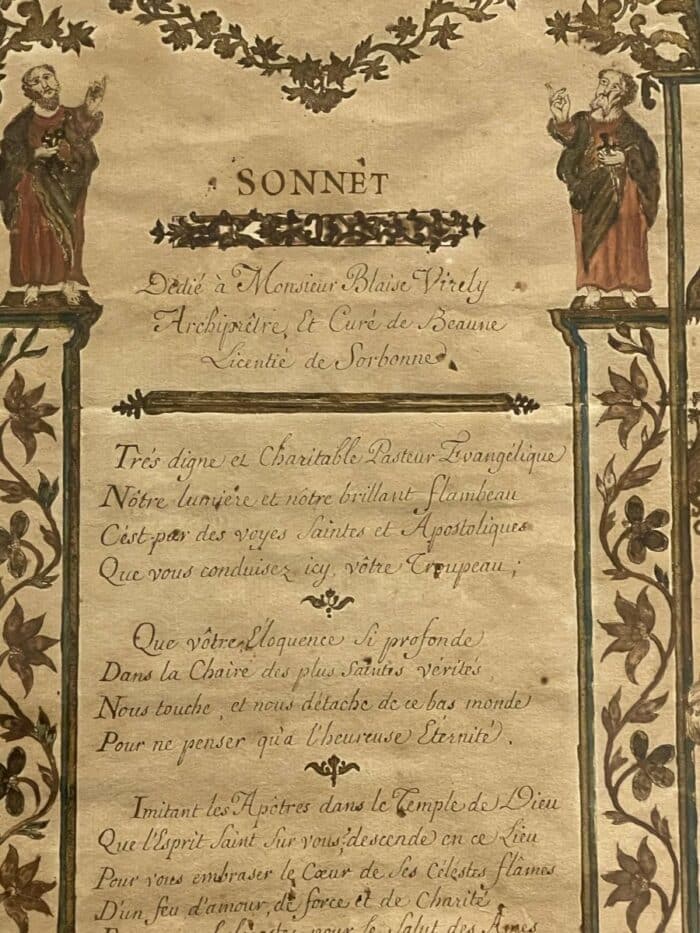 SONNET
Dédié à Monsieur Blaise Virely
Archiprêtre, Et Curé de Beaune
Licentié de Sorbonne
Trés digne et Charitable Pasteur Evangélique
Nôtre lumiére et nôtre brillant flambeau
C'ést par des voyes Saintes et Apostoliques
Que vous conduisez icy vôtre Troupeau;
Que vôtre Eloquence Si profonde
Dans la Chaire des plus Saintes vérités
Nous touche, et nous détache de ce bas monde
Pour ne penser qu'a l'heureuse Eternité.
Imitant les Apôtres dans le Temple de Dieu
Que l'Esprit Saint Sur vous descende en ce Lieu
Pour vous embraser le Cœur de Ses Célestes flâmes
D'un feu d'amour, de force et de Charité
pour le Salut des Ames